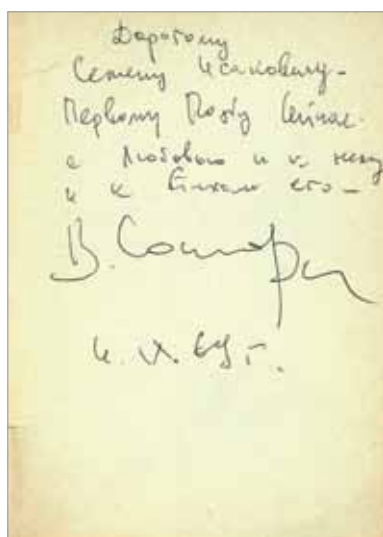 Дорогому
Семену Исаковичу –
Первому Поэту Сейчас.
с Любовью и к нему
и к Стихам его –
В. Соснора